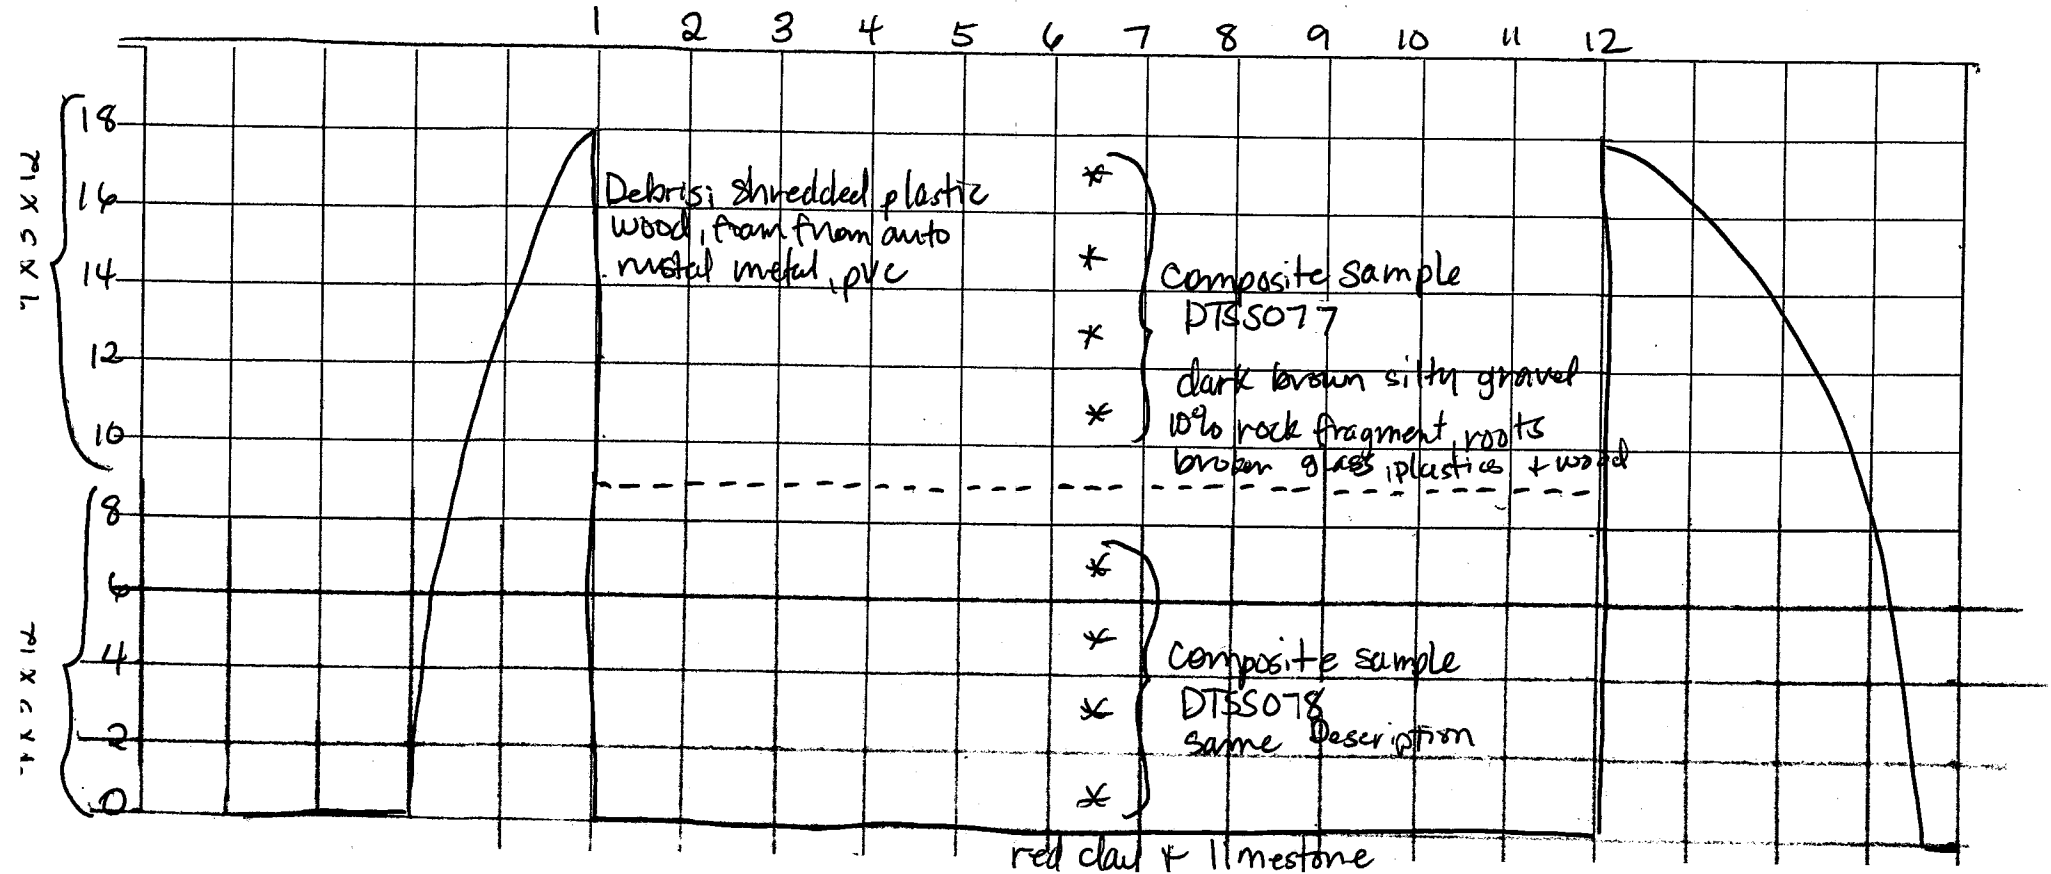 1 2 3 4 5 6 7 8 9 10 11 12
18
16
14
12
10
8
6
4
2
0
Debris; shredded plastic
wood, foam from auto
metal, pvc
Composite sample
DTSS077
dark brown silty gravel
10% rock fragment, roots
broken glass, plastics + wood
Composite sample
DTSS078
same Description
red clay + limestone